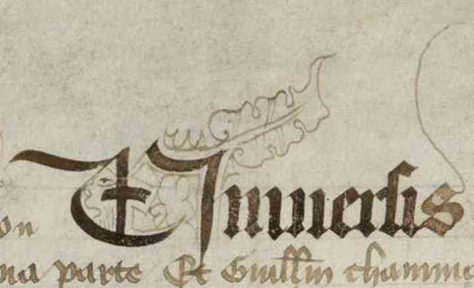 Uniuersis
on
na parte Et Guillm